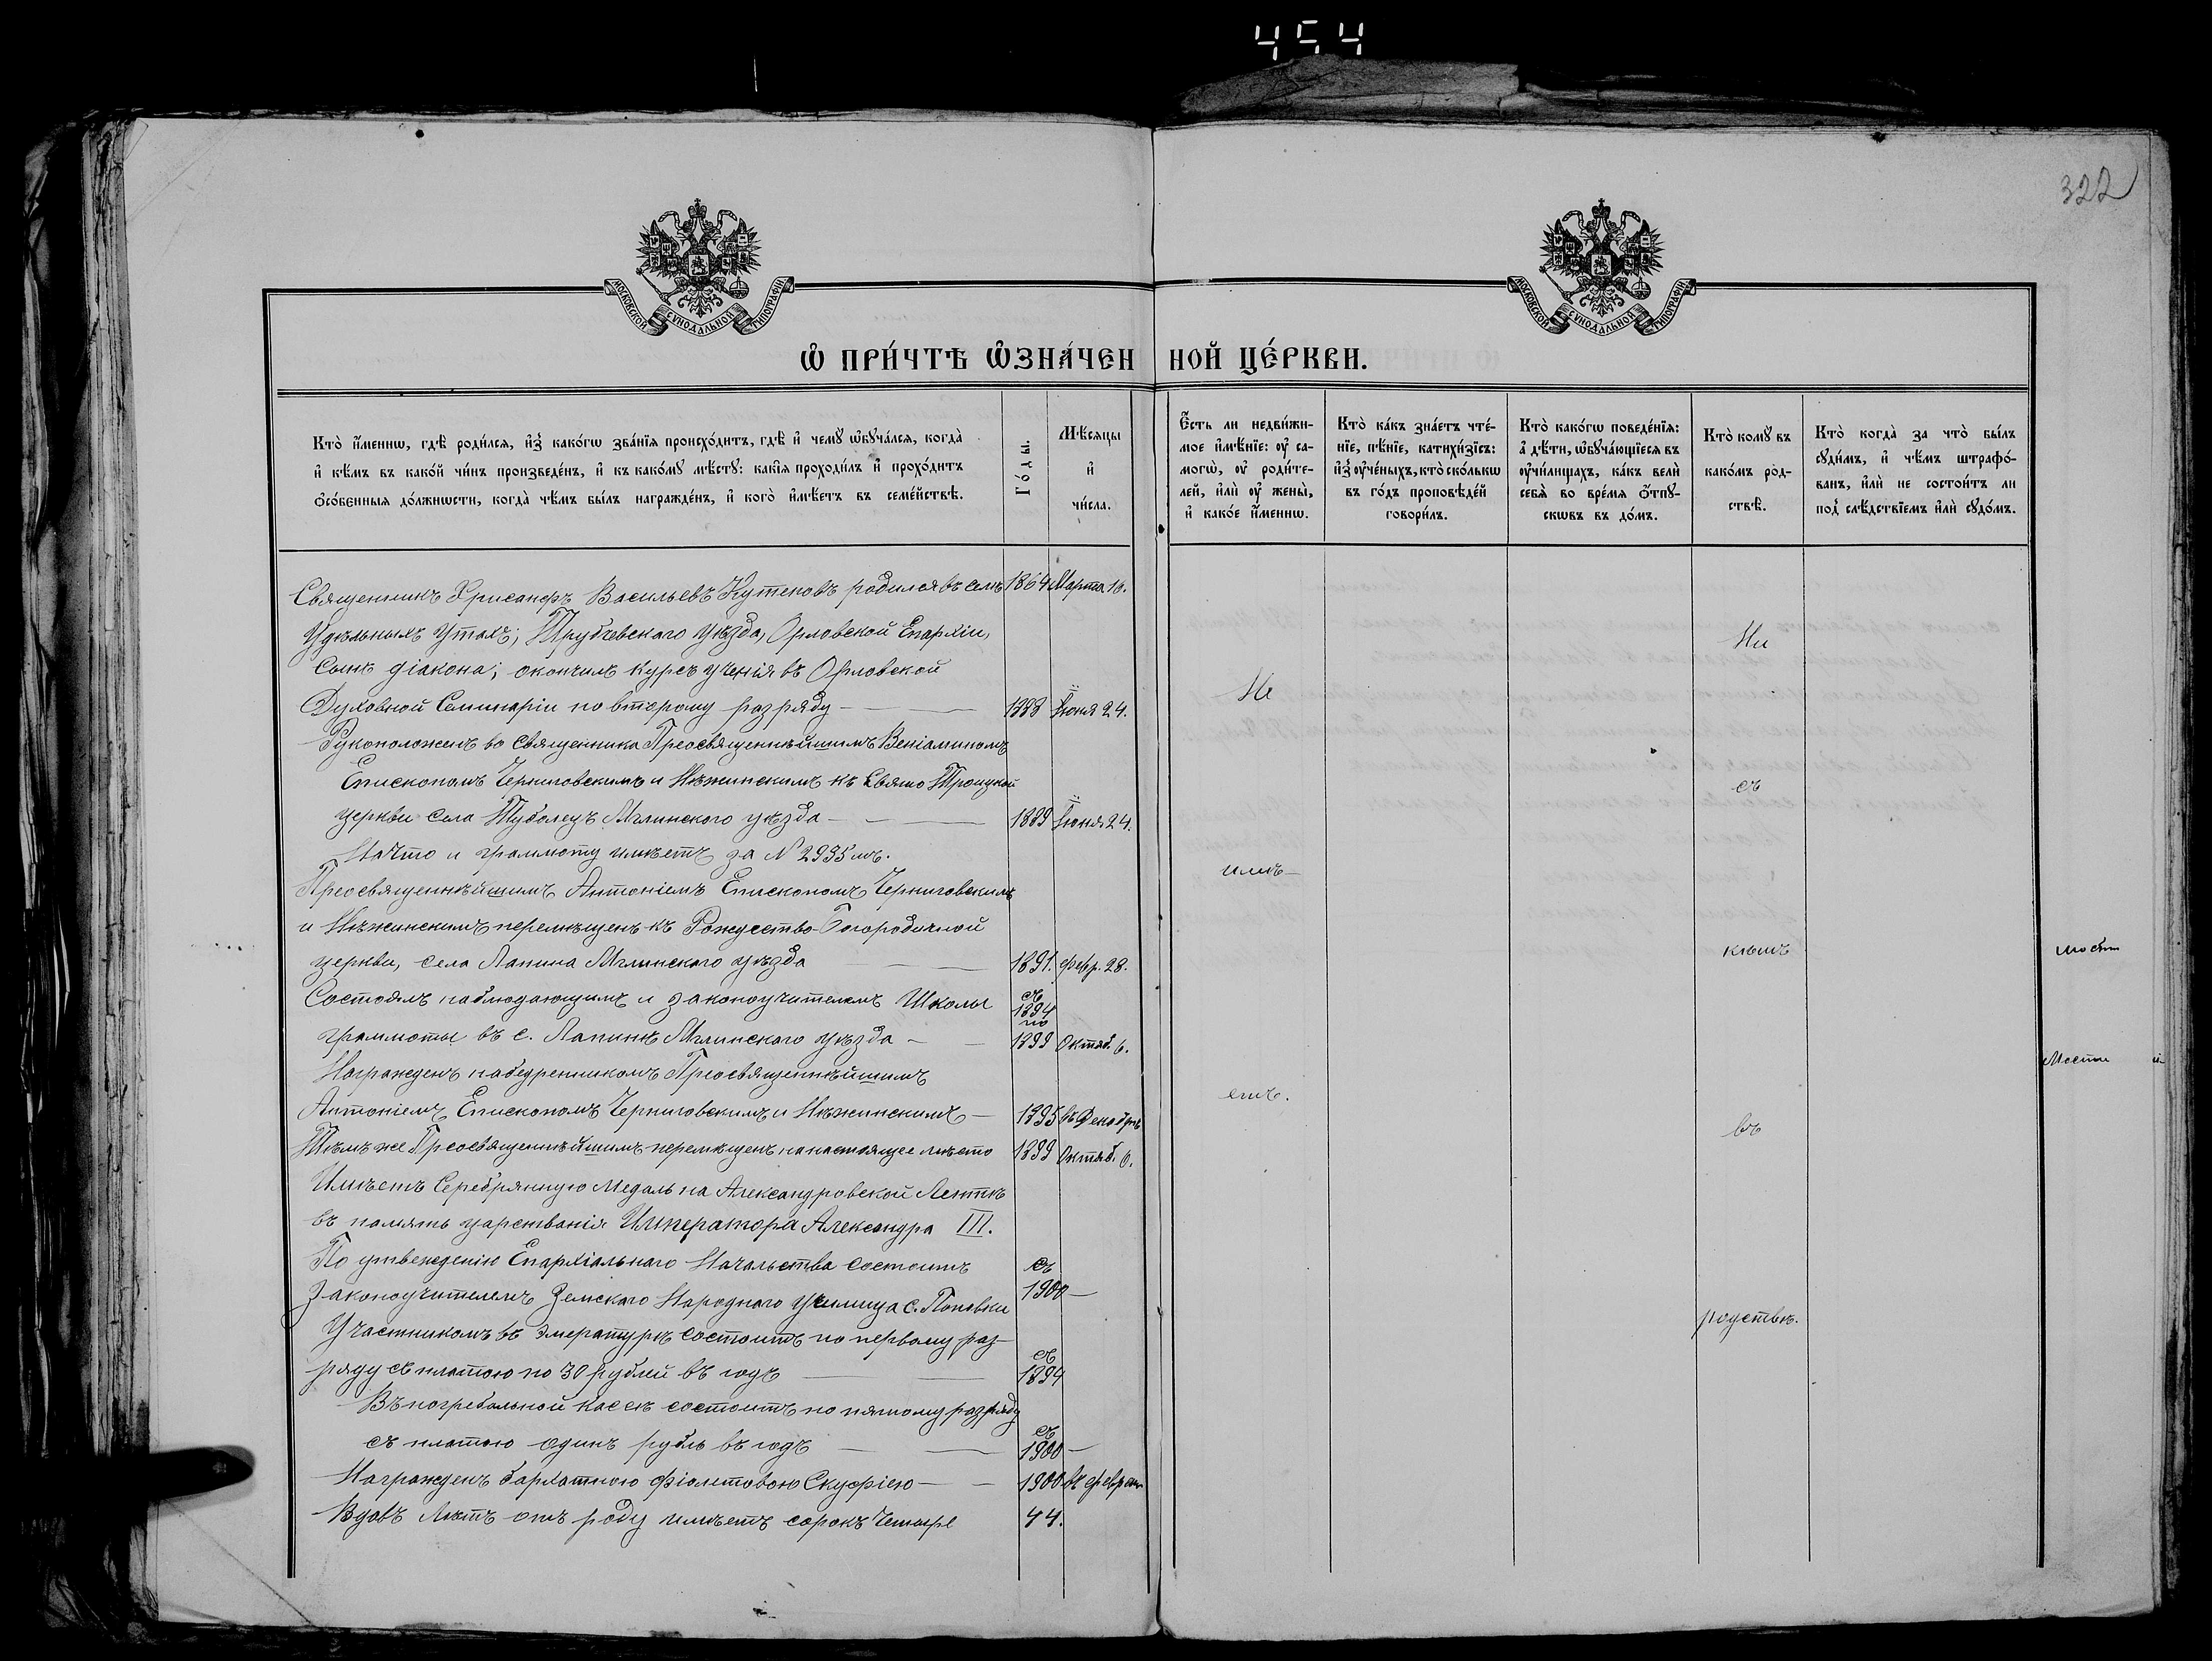 454
322
МОСКОВСКОЙ СУНОДАЛЬНОЙ ТИПОГРАФІИ
МОСКОВСКОЙ СУНОДАЛЬНОЙ ТИПОГРАФІИ
Ѽ ПРИ́ЧТѢ Ѽ҆ЗНА́ЧЕННОЙ ЦЕ́РКВИ.
Кто̀ и҆́меннѡ, гдѣ̀ роди́лся, и҆з̾ како́гѡ зва́нїя происхо́дитъ, гдѣ̀ и҆ чемꙋ̀ ѡ҆бꙋча́лся, когда̀
и҆ кѣ́мъ въ како́й чи́нъ произведе́нъ, и҆ къ како́мꙋ мѣ́стꙋ: какі̂я проходи́лъ и҆ прохо́дитъ
Ѻ҆со́бенныя до́лжнѡсти, когда̀ чѣ́мъ бы́лъ награжде́нъ, и҆ кого̀ и҆мѣ́етъ въ семе́йствѣ.
Го́ды.
Мѣ́сяцы
и҆
чи́сла.
Є҆́сть ли недви́жи-
мое и҆мѣ́нїе: ᲂу҆ са-
могѡ̀, ᲂу҆ роди́те-
лей, и҆лѝ ᲂу҆ жены̀,
и҆ како́е и҆́меннѡ.
Кто̀ ка́къ зна́етъ чте́-
нїе, пѣ́нїе, катихи́зїсъ:
и҆з̾ ᲂу҆че́ныхъ, кто̀ ско́лькѡ
въ го́дъ проповѣ́дей
говори́лъ.
Кто̀ како́гѡ поведе́нїя:
а҆ дѣ́ти, ѡ҆бꙋча́ющїеся въ
ᲂу҆чи́лищахъ, ка́къ велѝ
себѐ во вре́мя ѿпꙋ-
сковъ въ до́мъ.
Кто̀ комꙋ̀ въ
како́мъ ро́д-
ствѣ̀.
Кто̀ когда̀ за что̀ бы́лъ
сꙋди́мъ, и҆ чѣ́мъ штрафо́-
ванъ, и҆лѝ не состои́тъ ли
под̾ слѣ́дствїемъ и҆лѝ сꙋдо́мъ.
Священникъ Хрисанфъ Васильевъ Кутеповъ родился въ селѣ 1864 Марта 16.
Удѣльныхъ Утахъ; Трубчевскаго Уѣзда, Орловской Епархіи,
сынъ діакона; окончилъ курсъ ученія въ Орловской
Духовной Семинаріи по второму разряду — — 1888 Іюня 24.
Рукоположенъ во священника Преосвященнѣйшимъ Веніаминомъ
Епископомъ Черниговскимъ и Нѣжинскимъ къ Свято Троицкой
церкви села Туболецъ Мглинского уѣзда — — 1889 Іюня 24.
На что и граммоту имѣетъ за № 2935мъ.
Преосвященнѣйшимъ Антоніемъ Епископомъ Черниговскимъ
и Нѣжинскимъ перемѣщенъ къ Рождество-Богородичной
церкви, села Лапина Мглинскаго уѣзда — — 1891. Февр. 28.
Состоялъ наблюдающимъ и законоучителемъ Школы съ 1894 по
граммоты въ с. Лапинѣ Мглинскаго уѣзда — — 1899 Октяб. 6.
Награжденъ набедренникомъ Преосвященнѣйшимъ
Антоніемъ Епископомъ Черниговскимъ и Нѣжинскимъ — 1895 въ Декабрѣ
Тѣмъ же Преосвященнѣйшимъ перемѣщенъ на настоящее мѣсто 1899 Октяб. 6.
Имѣетъ Серебрянную Медаль на Александровской Лентѣ
въ память царствванія Императора Александра III.
По утвежденію Епархіальнаго Начальства состоитъ съ
Законоучителемъ Земскаго Народнаго Училища с. Поповки 1900 —
Участникомъ въ эмературѣ состоитъ по первому раз-
ряду съ платою по 30 рублей въ годъ — — съ 1894
Въ погребальной кассѣ состоитъ по пятому разряду
съ платою одинъ рубль въ годъ — — съ 1900 —
Награжденъ бархатною фіолетовою Скуфіею — — 1900 въ феврал
Вдовъ Лѣтъ отъ роду имѣетъ сорокъ четыре 44.
Не
имѣ-
етъ.
Ни
съ
кѣмъ
въ
родствѣ.